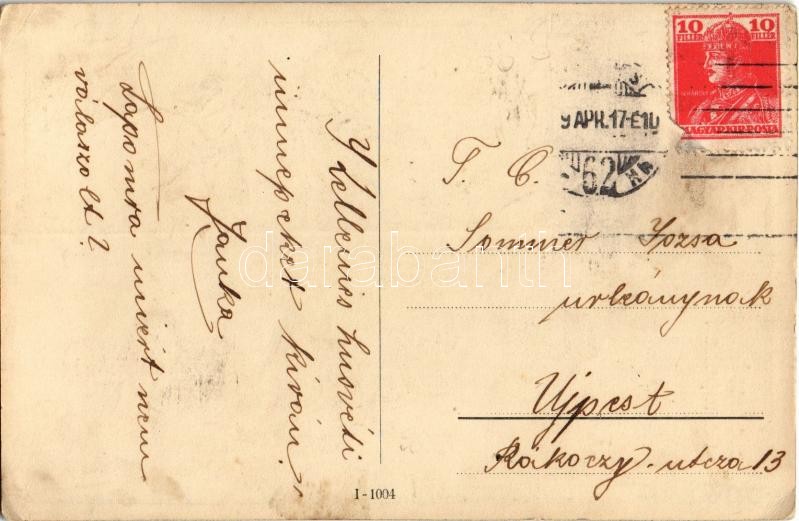 Kellemes husvéti
ünnepeket kíván!
Janka
Lapomra miért nem
válaszolt?
T. C.
Sommer Jozsa
urleánynak
Ujpest
Rákoczy-utcza 13
I-1004
10 10
FILLÉR FILLÉR
MAGYAR KIR. POSTA
9 APR. 17-E10
62
darabanth